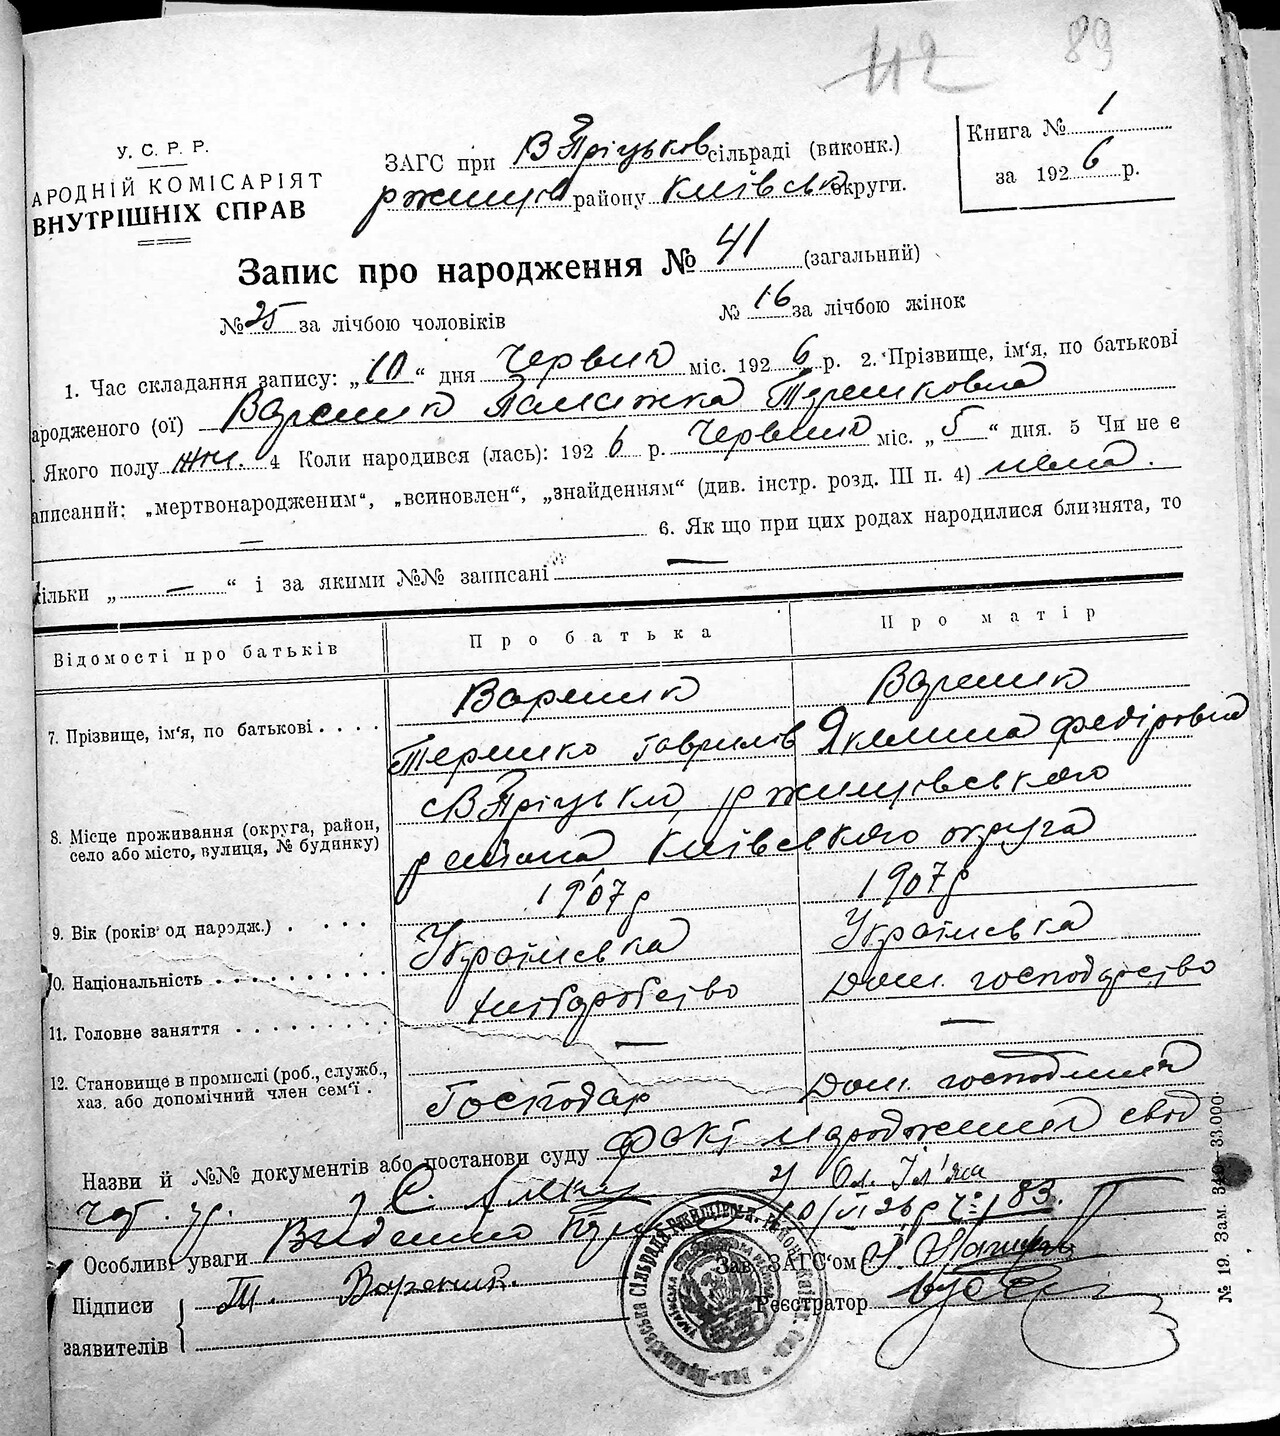 112 89
У. С. Р. Р.
АРОДНІЙ КОМІСАРІЯТ
ВНУТРІШНІХ СПРАВ
ЗАГС при В Пріцьков сільраді (виконк.)
ржищів району Київськ округи.
Книга № 1
за 1926 р.
Запис про народження № 41 (загальний)
№ 25 за лічбою чоловіків № 16 за лічбою жінок
1. Час складання запису: „10“ дня Червня міс. 1926 р. 2. Прізвище, ім'я, по батькові
ародженого (ої) Вареник Палажка Терешковна
. Якого полу жін. 4 Коли народився (лась): 1926 р. Червня міс. „5“ дня. 5 Чи не є
аписаний: „мертвонародженим“, „всиновлен“, „знайденням“ (див. інстр. розд. III п. 4) нема.
— 6. Як що при цих родах народилися близнята, то
кільки „ — “ і за якими №№ записані —
Відомості про батьків Про батька Про матір
Вареник Вареник
7. Прізвище, ім'я, по батькові . . . .
Терешко Гаврилов Якелина Федіровна
с В Пріцьки, ржищівського
8. Місце проживання (округа, район,
село або місто, вулиця, № будинку)
района Київського округа
1907 р 1907 р
9. Вік (років од народж.) . . . .
Українська Українська
0. Національність . . . . . . . . . .
хліборобство Дом. господарство
11. Головне заняття . . . . . . . . .
— —
12. Становище в промислі (роб., служб.,
хаз. або допомічний член сем'ї .
Господар Дом. господиня
Назви й №№ документів або постанови суду факт народження свід
С. 2)
Особливі уваги Видано 10/VI 26 р № 183.
Зав. ЗАГС'ом
Підписи
заявителів
Т. Вареник.
Реєстратор
№ 19. Зам. 349—33.000.